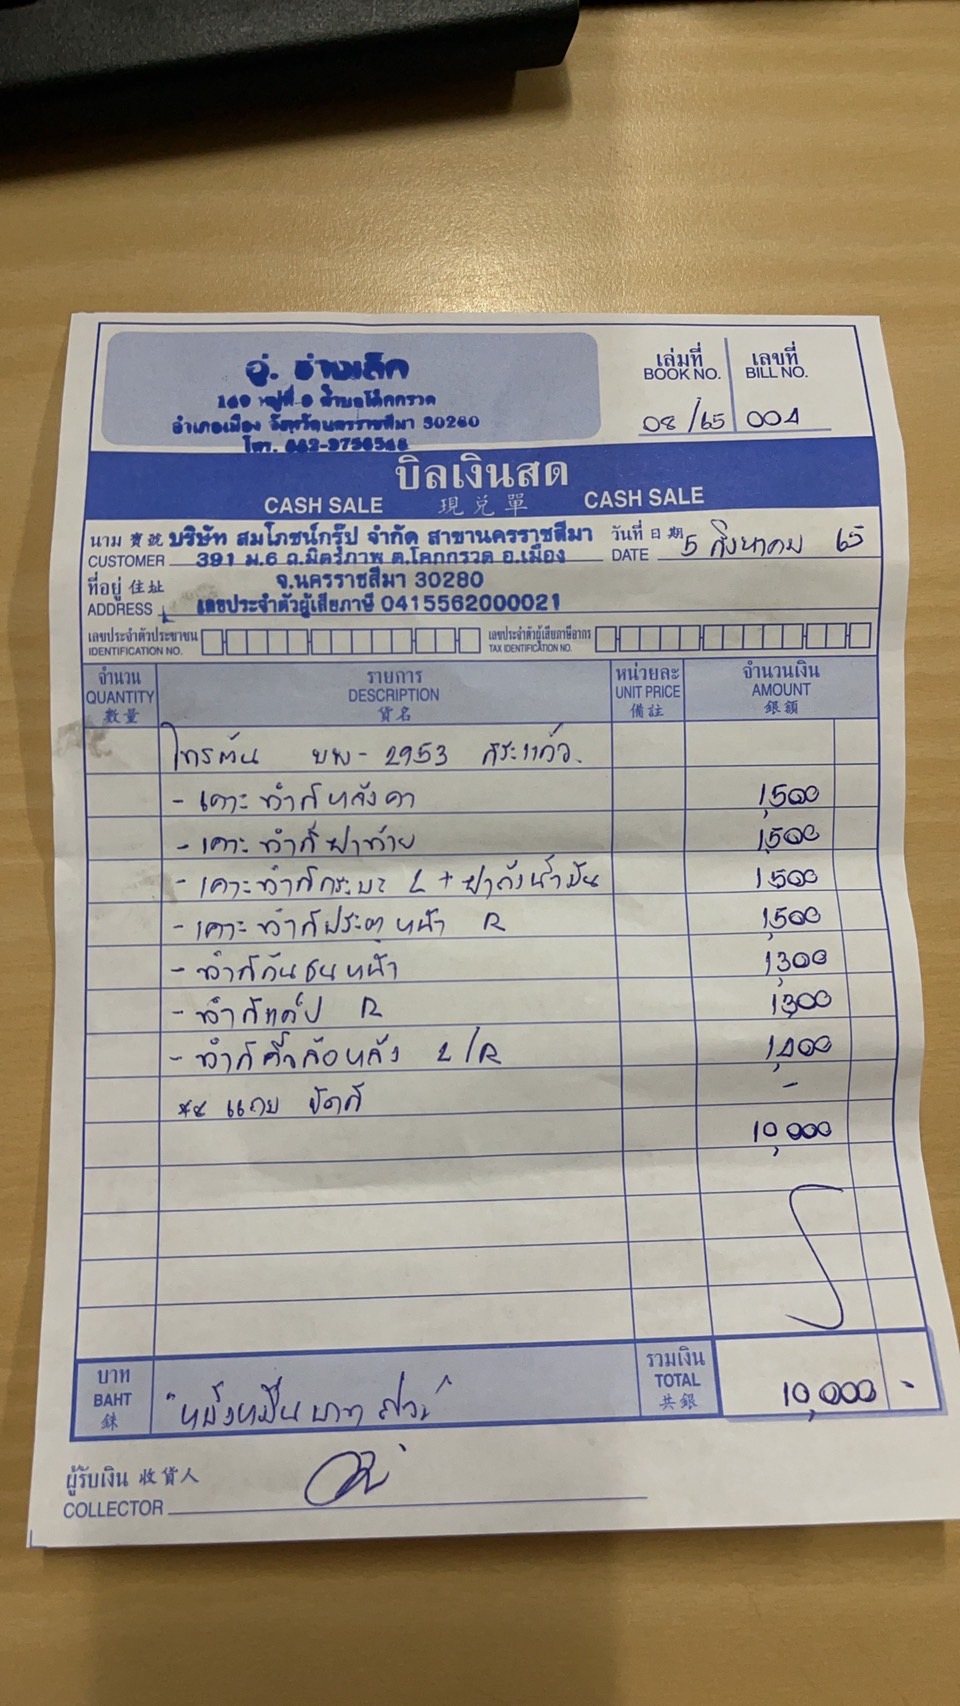 อู่. ช่างเล็ก
อำเภอเมือง จังหวัดนครราชสีมา 30280
เล่มที่ เลขที่
BOOK NO. BILL NO.
08/65 004
บิลเงินสด
CASH SALE 現兑單 CASH SALE
นาม 寳號 บริษัท สมโภชน์กรุ๊ป จำกัด สาขานครราชสีมา วันที่ 日期
CUSTOMER 391 ม.6 ถ.มิตรภาพ ต.โคกกรวด อ.เมือง DATE 5 สิงหาคม 65
ที่อยู่ 住址 จ.นครราชสีมา 30280
ADDRESS เลขประจำตัวผู้เสียภาษี 0415562000021
เลขประจำตัวประชาชน เลขประจำตัวผู้เสียภาษีอากร
IDENTIFICATION NO. TAX IDENTIFICATION NO.
จำนวน รายการ หน่วยละ จำนวนเงิน
QUANTITY DESCRIPTION UNIT PRICE AMOUNT
數量 貨名 備註 銀額
ไทรตัน บพ - 2953 สระแก้ว.
- เคาะทำสีหลังคา 1,500
- เคาะทำสีฝาท้าย 1,500
- เคาะทำสีกระบะ L + ฝาถังน้ำมัน 1,500
- เคาะทำสีประตูหน้า R 1,500
- ทำสีกันชนหน้า 1,300
- ทำสีแค็ป R 1,300
- ทำสีคิ้วล้อหลัง L/R 1,400
** แถม ขัดสี -
10,000
บาท รวมเงิน
BAHT "หนึ่งหมื่นบาทถ้วน" TOTAL 10,000 -
銖 共銀
ผู้รับเงิน 收貨人
COLLECTOR